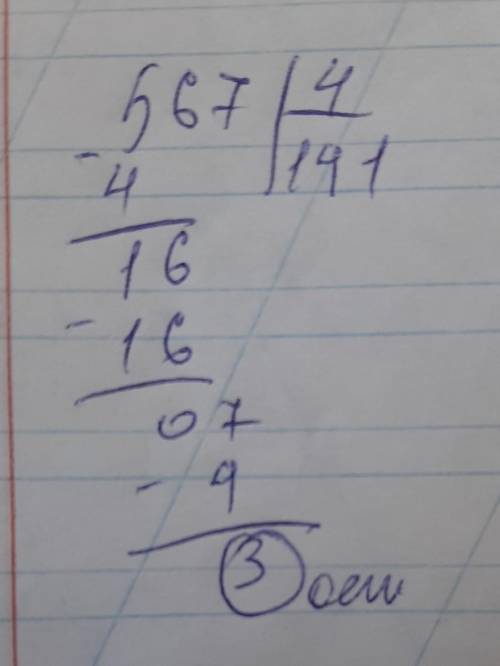 567 4
- 4 141
16
- 16
07
- 4
3 ост